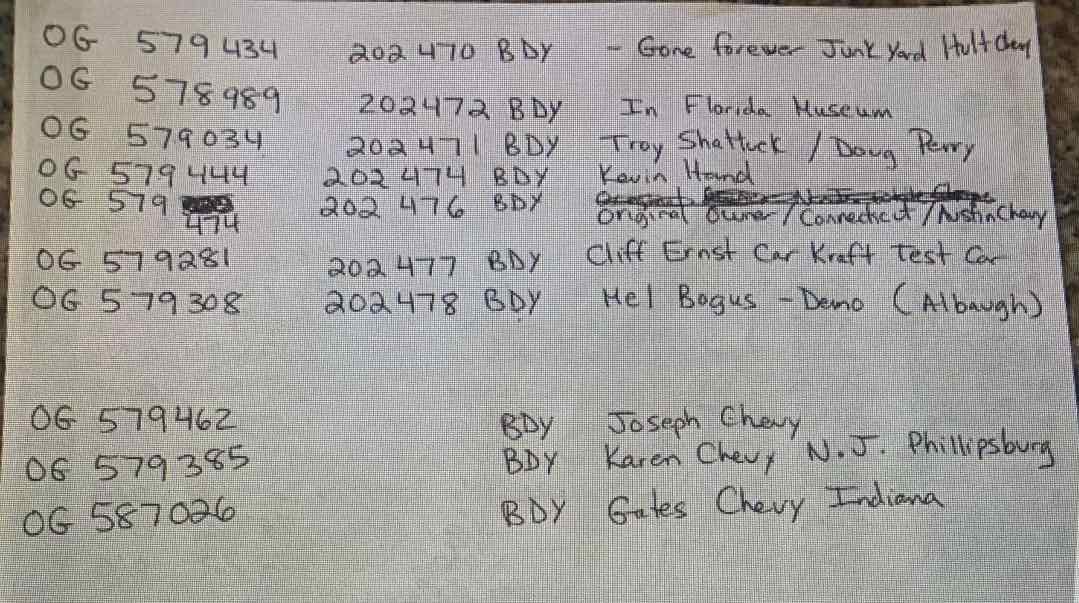 OG 579434 202470 BDY - Gone forever Junk Yard Hult Chevy
OG 578989 202472 BDY In Florida Museum
OG 579034 202471 BDY Troy Shattuck / Doug Perry
OG 579444 202474 BDY Kevin Hand
OG 579 474 202 476 BDY Original Owner / Connecticut / Austin Chevy
OG 579281 202477 BDY Cliff Ernst Car Kraft Test Car
OG 579308 202478 BDY Mel Bogus - Demo (Albaugh)
OG 579462 BDY Joseph Chevy
OG 579385 BDY Karen Chevy N.J. Phillipsburg
OG 587026 BDY Gates Chevy Indiana